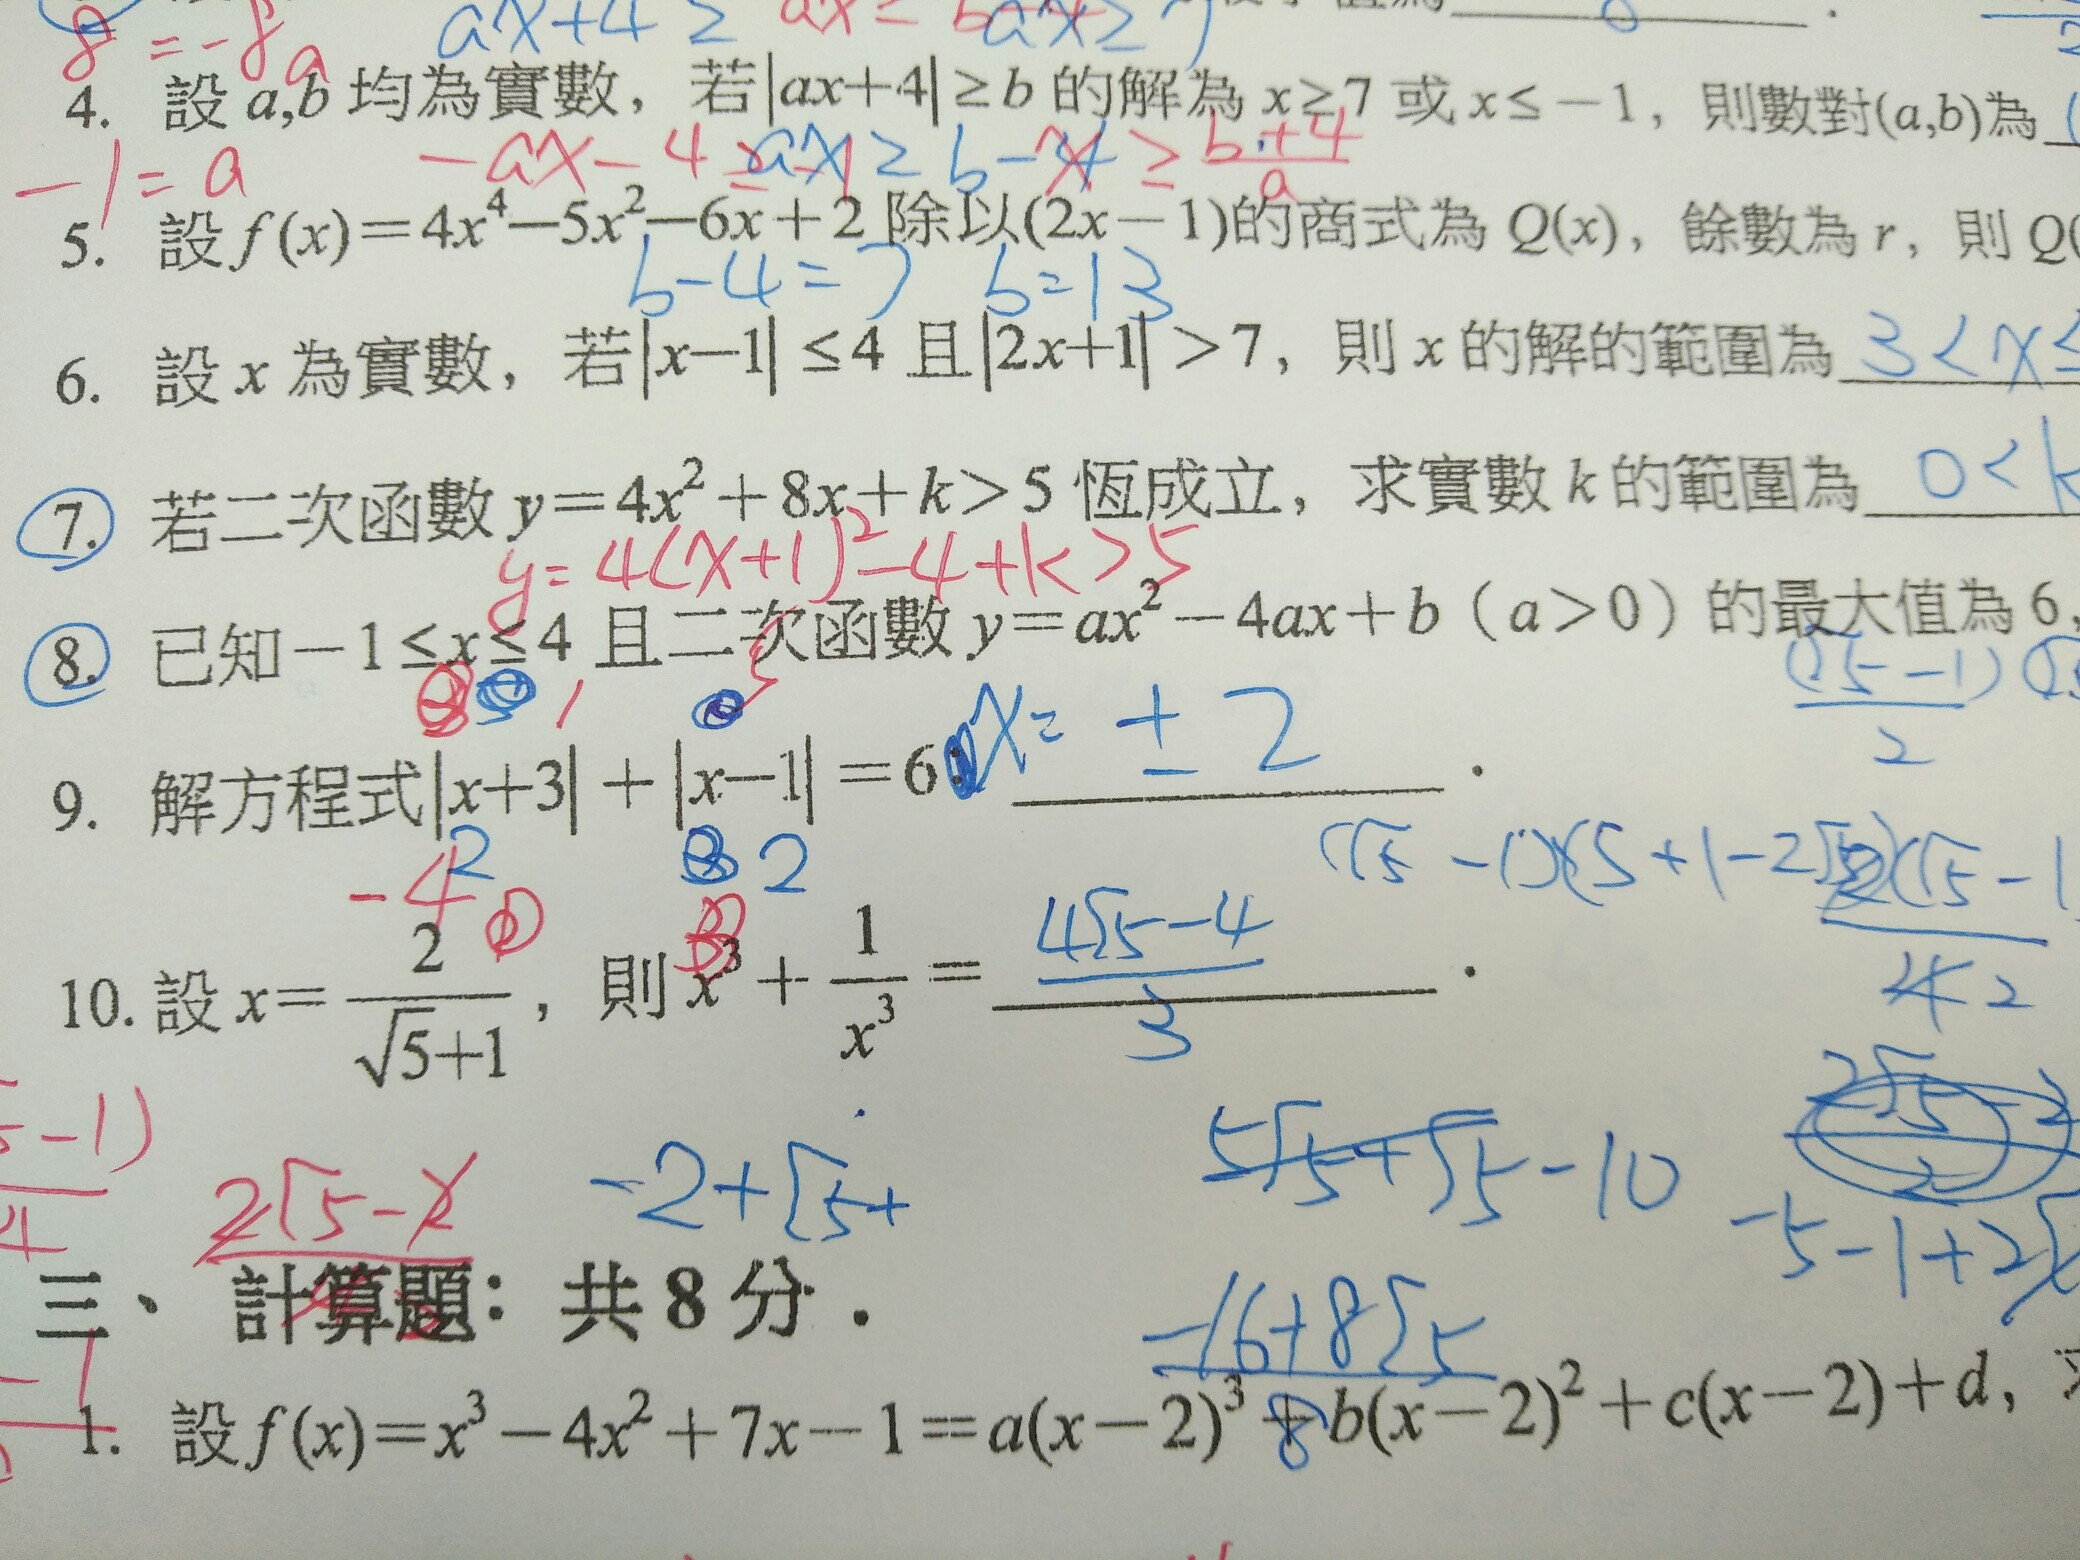 8 = -8a
ax+4≥
4. 設 a,b 均為實數，若|ax+4|≥b 的解為 x≥7 或 x≤-1，則數對(a,b)為
-1=a
5. 設 f(x)=4x⁴-5x²-6x+2 除以(2x-1)的商式為 Q(x)，餘數為 r，則 Q(
b-4=7 b=13
6. 設 x 為實數，若|x-1|≤4 且|2x+1|>7，則 x 的解的範圍為 3<x≤
7. 若二次函數 y=4x²+8x+k>5 恆成立，求實數 k 的範圍為 0<k
y=4(x+1)²-4+k>5
8. 已知-1≤x≤4 且二次函數 y=ax²-4ax+b（a>0）的最大值為 6，
9. 解方程式|x+3|+|x-1|=6： x=±2 .
-4 2 2
10. 設 x=2/(√5+1)，則 x³+1/x³= (4√5-4)/3 .
2√5-2 -2+√5+ 5√5+√5-10
-5-1+2√
三、計算題：共 8 分．
(-16+8√5)/8
1. 設 f(x)=x³-4x²+7x-1=a(x-2)³+b(x-2)²+c(x-2)+d，